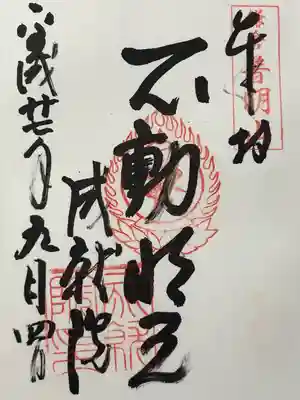 奉拝
不動明王
成就院
平成廿七年九月四日